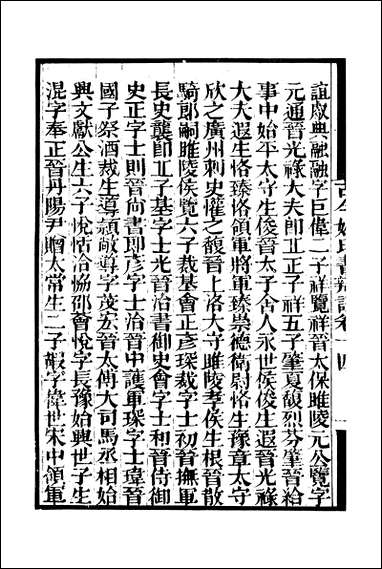 誼叡典融融字巨偉二子祥覽祥晉太保睢陵元公覽字
元通晉光祿大夫即丘正子祥五子肇夏馥烈芬肇晉給
事中始平太守生俊晉太子舍人永世侯俊生遐晉光祿
大夫遐生恪臻恪領軍將軍臻崇德衛尉恪生豫章太守
欣之廣州刺史懽之馥晉上洛大守睢陵孝侯生根晉散
騎郎嗣睢陵侯覽六子裁基會正彥琛裁字士初晉撫軍
長史襲即丘子基字士先晉治書御史會字士和晉侍御
史正字士則晉尚書即彥字士治晉中護軍琛字士瑋晉
國子祭酒裁生導潁敞導字茂宏晉太傅大司馬丞相始
興文獻公生六子悅恬洽恊邵薈悅字長豫始興世子生
混字奉正晉丹陽尹贈太常生二子嘏字偉世宋中領軍
古今姓氏書辯證卷十四